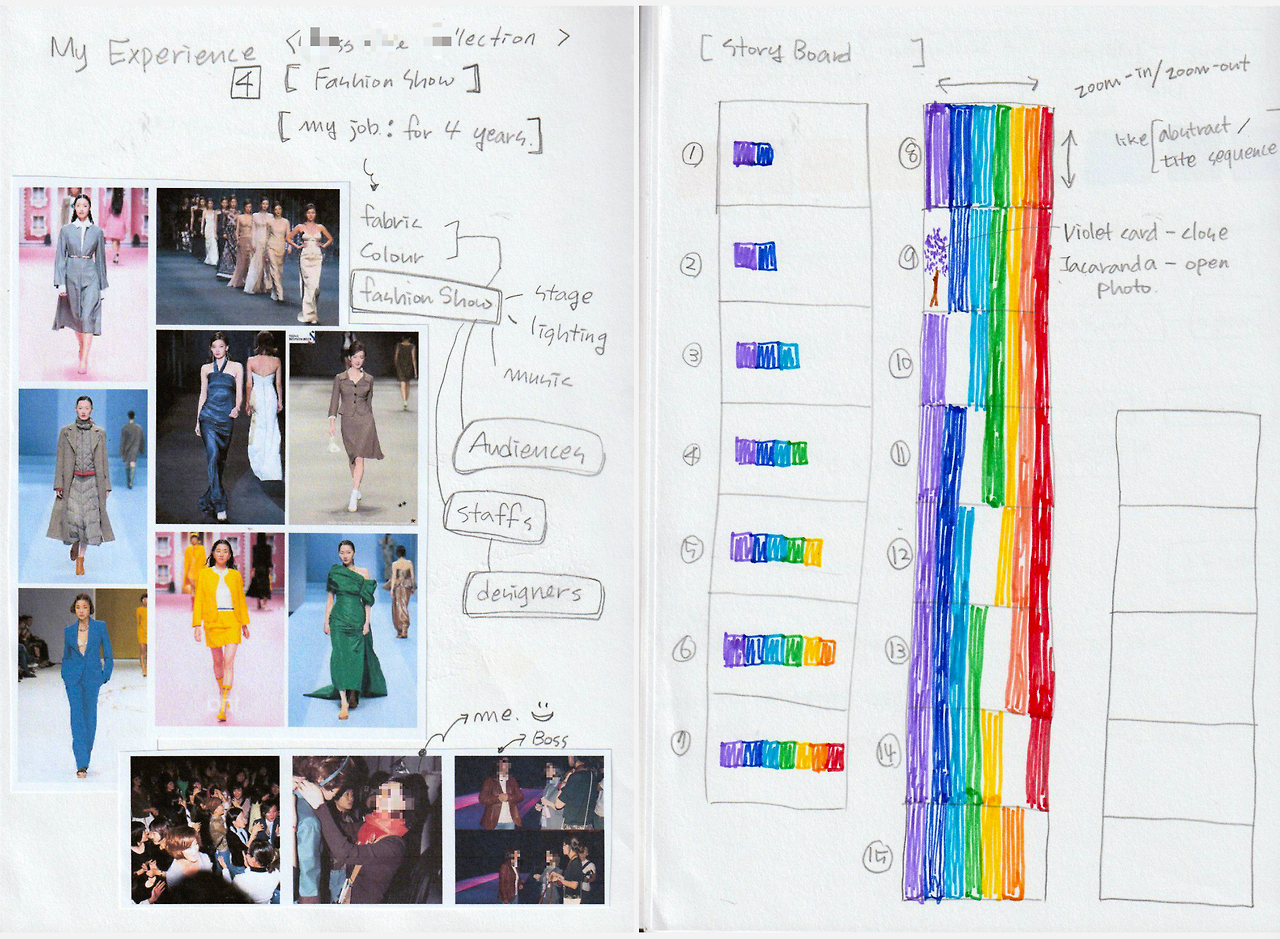 My Experience
4 [ Fashion Show ]
[ my job : for 4 years. ]
fabric
Colour
fashion Show
stage
lighting
music
Audiences
staffs
designers
me.
Boss
[ Story Board ]
zoom-in/zoom-out
like [ abstract /
title sequence
Violet card - close
Jacaranda - open
photo.
1
2
3
4
5
6
7
8
9
10
11
12
13
14
15